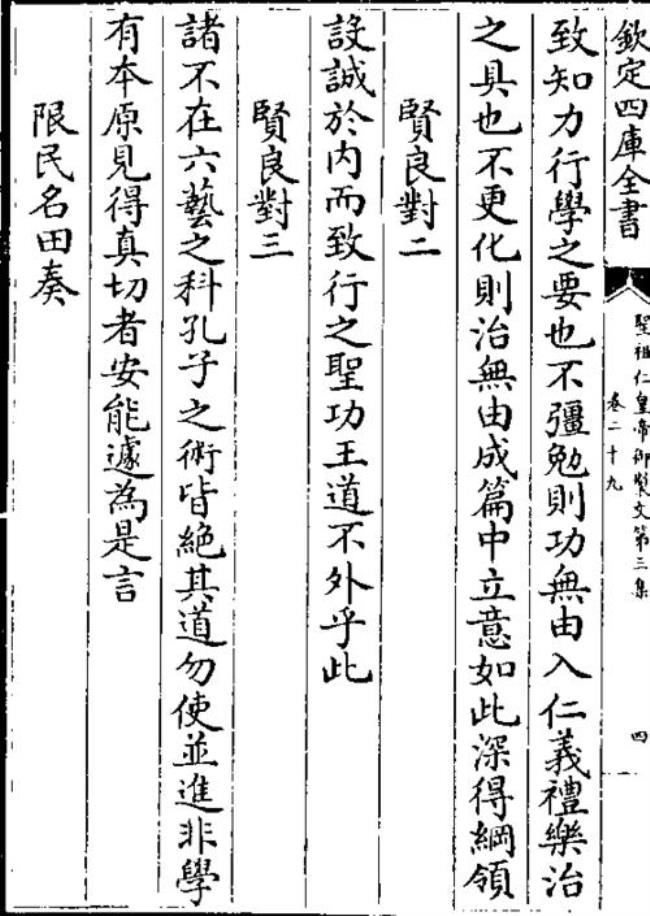 欽定四庫全書
聖祖仁皇帝御製文第三集
卷二十九
四
致知力行學之要也不彊勉則功無由入仁義禮樂治
之具也不更化則治無由成篇中立意如此深得綱領
賢良對二
設誠於内而致行之聖功王道不外乎此
賢良對三
諸不在六藝之科孔子之術皆絶其道勿使並進非學
有本原見得真切者安能遽為是言
限民名田奏